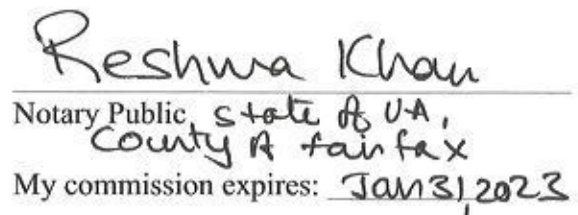 Reshma Khan
Notary Public, State of VA,
County of fairfax
My commission expires: Jan 31, 2023